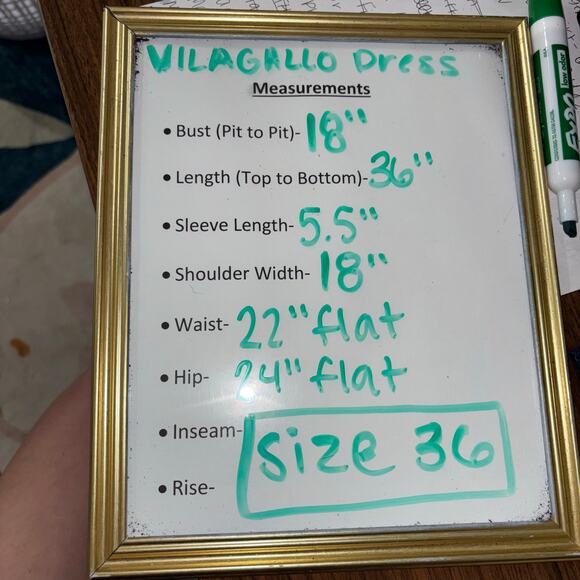 VILAGALLO Dress
Measurements
• Bust (Pit to Pit)- 18"
• Length (Top to Bottom)- 36"
• Sleeve Length- 5.5"
• Shoulder Width- 18"
• Waist- 22" flat
• Hip- 24" flat
• Inseam-
Size 36
• Rise-
EXPO
low odor